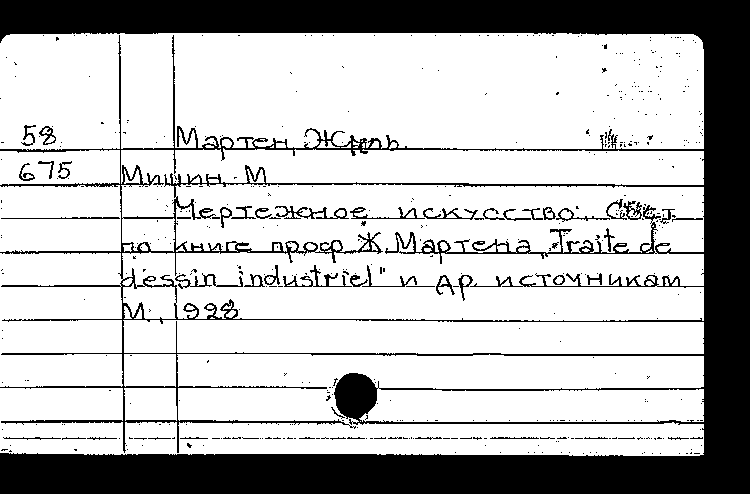 58 Мартен, Жюль.
675 Мишин, М
Чертежное искусство. Сост.
по книге проф. Ж. Мартена „Traite de
dessin industriel" и др. источникам.
М., 1928